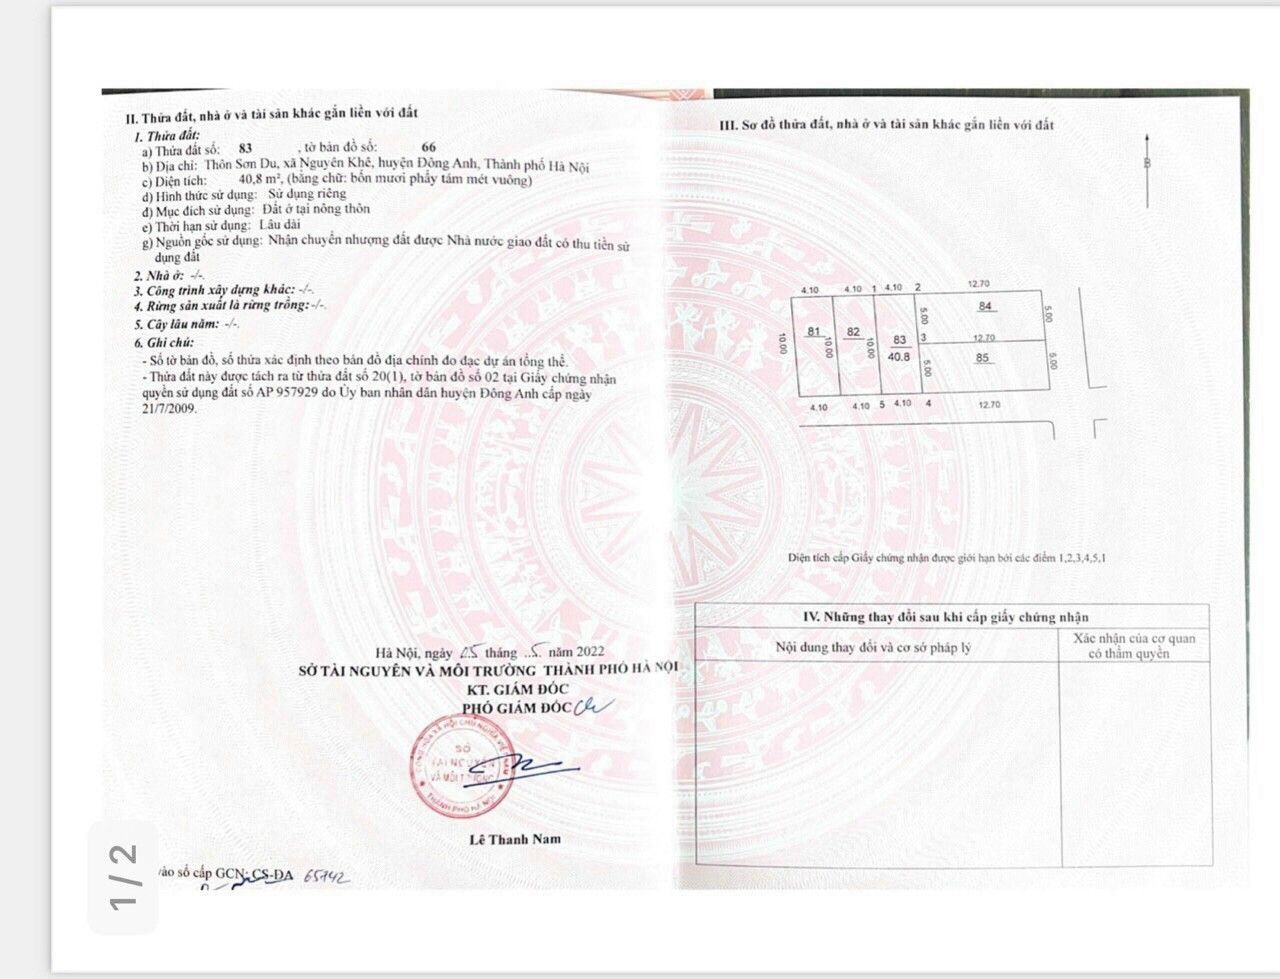 II. Thửa đất, nhà ở và tài sản khác gắn liền với đất
1. Thửa đất:
a) Thửa đất số: 83 , tờ bản đồ số: 66
b) Địa chỉ: Thôn Sơn Du, xã Nguyên Khê, huyện Đông Anh, Thành phố Hà Nội
c) Diện tích: 40,8 m², (bằng chữ: bốn mươi phẩy tám mét vuông)
d) Hình thức sử dụng: Sử dụng riêng
đ) Mục đích sử dụng: Đất ở tại nông thôn
e) Thời hạn sử dụng: Lâu dài
g) Nguồn gốc sử dụng: Nhận chuyển nhượng đất được Nhà nước giao đất có thu tiền sử
dụng đất
2. Nhà ở: -/-.
3. Công trình xây dựng khác: -/-.
4. Rừng sản xuất là rừng trồng:-/-.
5. Cây lâu năm: -/-.
6. Ghi chú:
- Số tờ bản đồ, số thửa xác định theo bản đồ địa chính đo đạc dự án tổng thể.
- Thửa đất này được tách ra từ thửa đất số 20(1), tờ bản đồ số 02 tại Giấy chứng nhận
quyền sử dụng đất số AP 957929 do Ủy ban nhân dân huyện Đông Anh cấp ngày
21/7/2009.
Hà Nội, ngày 25 tháng 5 năm 2022
SỞ TÀI NGUYÊN VÀ MÔI TRƯỜNG THÀNH PHỐ HÀ NỘI
KT. GIÁM ĐỐC
PHÓ GIÁM ĐỐC
SỞ
TÀI NGUYÊN
VÀ MÔI TRƯỜNG
THÀNH PHỐ HÀ NỘI
Lê Thanh Nam
vào sổ cấp GCN: CS-ĐA 65142
1/2
III. Sơ đồ thửa đất, nhà ở và tài sản khác gắn liền với đất
B
4.10 4.10 1 4.10 2 12.70
10.00 81 10.00 82 10.00 83 40.8 5.00 3 5.00
84 5.00
12.70
85 5.00
4.10 4.10 5 4.10 4 12.70
Diện tích cấp Giấy chứng nhận được giới hạn bởi các điểm 1,2,3,4,5,1
IV. Những thay đổi sau khi cấp giấy chứng nhận
Nội dung thay đổi và cơ sở pháp lý
Xác nhận của cơ quan
có thẩm quyền